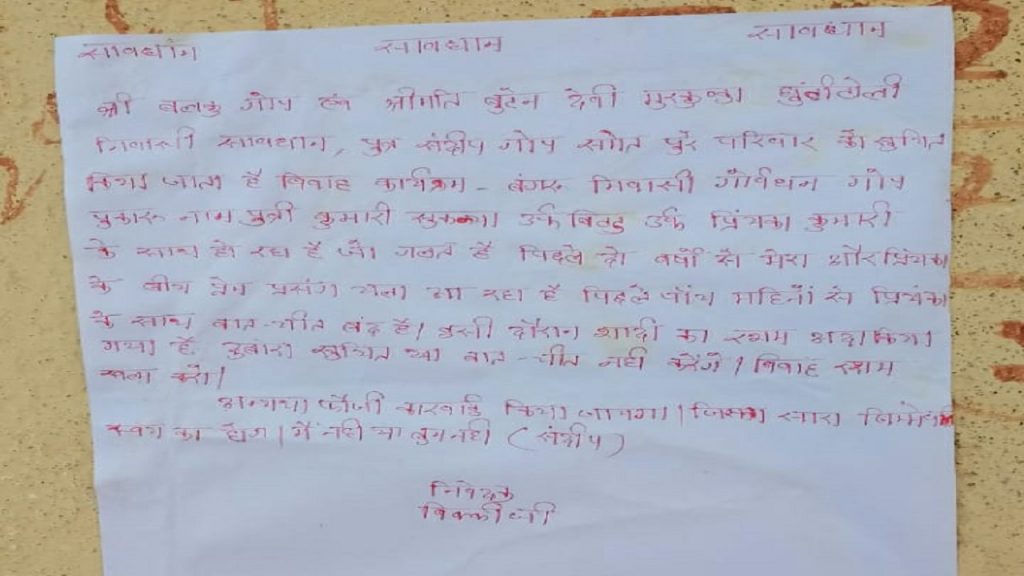 सावधान सावधान सावधान
श्री बलकु गोप एवं श्रीमति बुटेन देवी मुरकुन्डा
निवासी सावधान, पुत्र संदीप गोप समेत पुरे परिवार को सुचित
किया जाता है विवाह कार्यक्रम - बंगरू निवासी गोर्वधन गोप
नाम पुत्री कुमारी उर्फ उर्फ प्रियंका कुमारी
के साथ हो रहा है जो गलत है पिछले दो वर्षो से मेरा और प्रियंका
के बीच प्रेम प्रसंग चला आ रहा है पिछले पाँच महिनों से प्रियंका
के साथ बात-चीत बंद है। इसी दौरान शादी का रसम अदा किया
गया है दुबारा सुचित या बात-चीत नही करेंगे। विवाह रसम
करो।
अन्यथा फौजी कारवाई किया जायगा। जिसका सारा
स्वयं का होगा। मैं नही या तुम नही (संदीप)
निवेदक
विक्की जी